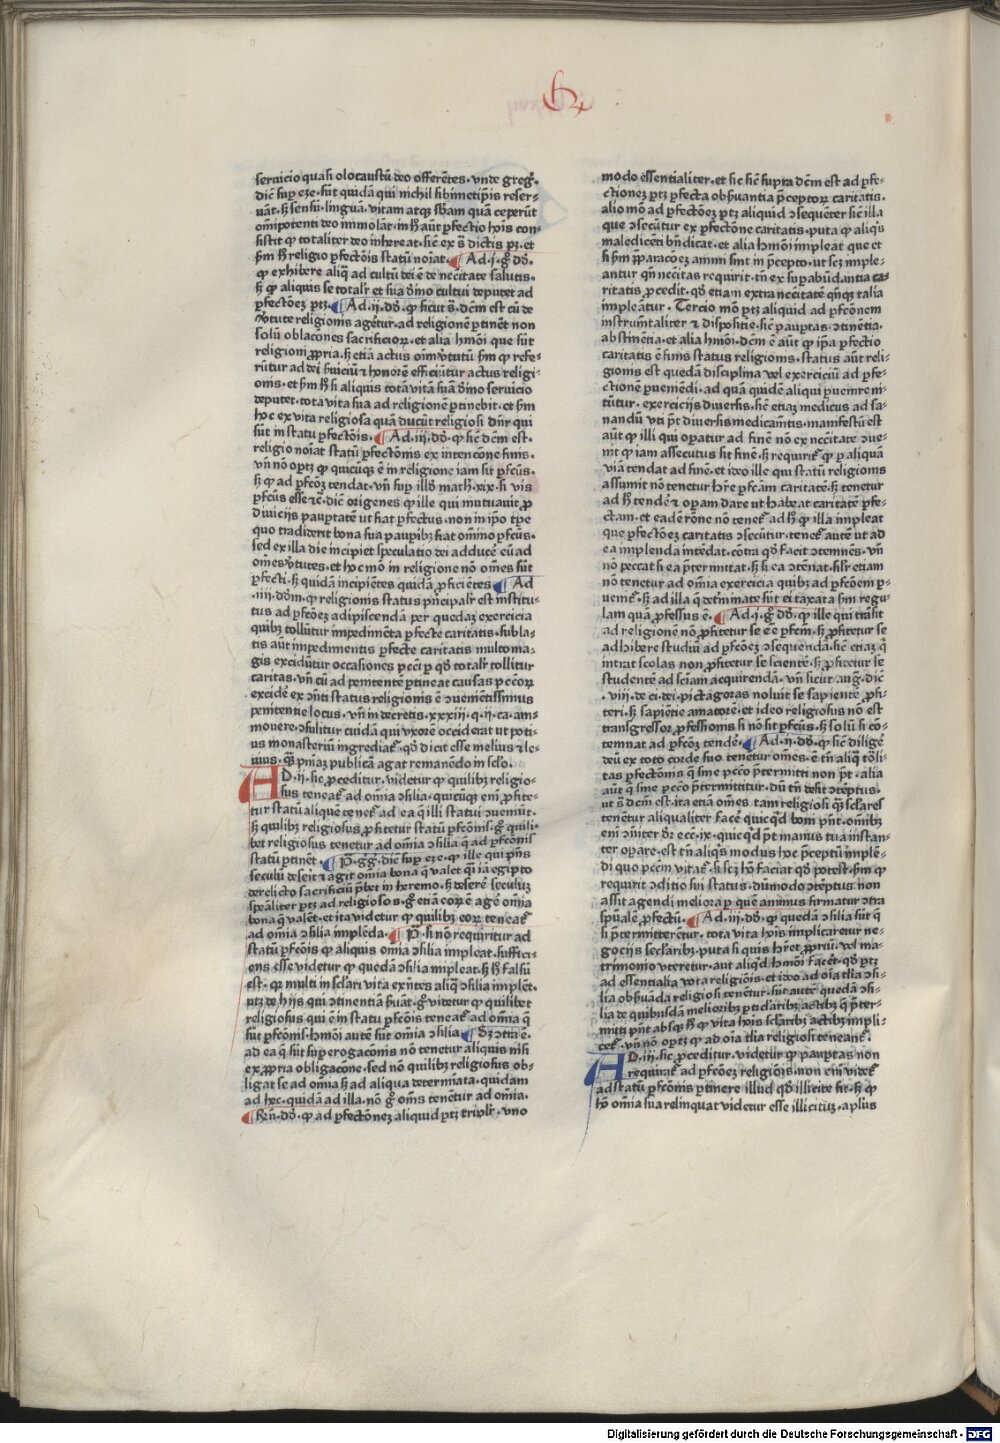 servicio quasi olocaustū deo offerētes · vnde greg᷒ ·
dic̄ sup eze · sūt quidā qui nichil sibimetip̄is reser-
uāt · ꜩ sensū · linguā · vitam atqꝫ sb̄am quā ceperūt
om̄ipotenti deo immolāt · in hꝫ aūt ꝑfectio hoīs con-
sistit ꝙ totaliter deo inhereat · sic̄ ex s̄ dictis pꝫ · et
ẜm hꝫ religio ꝑfectōis statū noīat · Ad · j · gͦ dō ·
ꝙ exhibere aliq̄ ad cultū dei ē de nc̄citate salutis ·
sꝫ ꝙ aliquis se totalr̄ et sua dīno cultui deputet ad
ꝑfectōeꝫ ꝑtꝫ · Ad · ij · dō · ꝙ sicut s̄ · dc̄m est cū de
ꝟtute religionis agetur · ad religionē ꝑtinēt non
solū oblacones sacrificioꝝ · et alia hmōi que sūt
religioni ꝓpria · sꝫ etiā actus oīm ꝟtutū ẜm ꝙ refe-
rūtur ad dei ẜuiciū ⁊ honorē efficiūtur actus religi-
onis · et ẜm hꝫ si aliquis totā vitā suā dīno seruicio
deputet · tota vita sua ad religionē ꝑtinebit · et ẜm
hoc ex vita religiosa quā ducūt religiosi dn̄r qui
sūt in statu ꝑfectōis · Ad · iij · dō · ꝙ sic̄ dc̄m est ·
religio noīat statū ꝑfectionis ex intencōne finis ·
vn̄ nō oꝑtꝫ ꝙ quicūqꝫ ē in religione iam sit ꝑfcūs ·
sꝫ ꝙ ad ꝑfcōꝫ tendat · vn̄ sup illō math · xix · si vis
ꝑfcūs esse ⁊c̄ · dic̄ origenes ꝙ ille qui mutauit ꝓ
diuicijs pauꝑtatē ut fiat ꝑfectus · non in ip̄o tꝑe
quo tradiderit bona sua pauꝑibꝫ fiat om̄ino ꝑfcūs ·
sed ex illa die incipiet speculatio dei adducē eū ad
om̄es ꝟtutes · et hoc mō in religione nō om̄es sūt
ꝑfecti · sꝫ quidā incipiētes quidā ꝓficiētes · Ad
· iiij · dōm · ꝙ religionis status pn̄cipalr̄ est institu-
tus ad ꝑfcōeꝫ adipiscendā per quedaꝫ exercicia
quibꝫ tollūtur impedimēta ꝑfecte caritatis · subla-
tis aūt impedimentis ꝑfecte caritatis multo ma-
gis excidūtur occasiones pccī ꝑ qd̄ totalr̄ tollitur
caritas · vn̄ cū ad penitentē ꝑtineat causas pccōꝝ
excidē ex ɔn̄ti status religionis ē ɔuenientissimus
penitentie locus · vn̄ in decretis · xxxiij · q · ij · ca · am-
monere · ɔsulitur cuidā qui vxorē occiderat ut poti-
us monasteriū ingrediat᷒ · qd̄ dicit esse melius ⁊ le-
uius · qꝫ pn̄iaꝫ publicā agat remanēdo in sclo ·
AD · ij · sic ꝓceditur · videtur ꝙ quilibꝫ religio-
sus teneat᷒ ad om̄ia ɔsilia · quicūqꝫ enī ꝓfite-
tur statū alique tenet᷒ ad ea q̄ illi statui ɔueniūt ·
sꝫ quilibꝫ religiosus ꝓfitetur statū ꝑfcōnis · gͦ quili-
bet religiosus tenetur ad om̄ia ɔsilia q̄ ad ꝑfcōnis
statū ꝑtinēt · P̄ · gg᷒ · dic̄ sup eze · ꝙ ille qui pn̄s
seculū deseit ⁊ agit om̄ia bona q̄ valet q̄si iā egipto
derelicto sacrificiū p̄bet in heremo · sꝫ deserē seculuꝫ
spēaliter ꝑtꝫ ad religiosos · gͦ etiā eoꝝ ē agē om̄ia
bona q̄ valēt · et ita videtur ꝙ quilibꝫ eoꝝ teneat᷒
ad om̄ia ɔsilia implēda · P̄ · si nō requiritur ad
statū ꝑfcōis ꝙ aliquis om̄ia ɔsilia impleat · suffici-
ens esse videtur ꝙ quedā ɔsilia impleat · sꝫ hꝫ falsū
est · qꝛ multi in sclari vita exn̄tes aliq̄ ɔsilia implēt ·
utꝫ de hijs qui ɔtinentiā ẜuāt · gͦ videtur ꝙ quilibet
religiosus qui ē in statu ꝑfcōis teneat᷒ ad om̄ia q̄
sūt ꝑfcōnis · hmōi autē sūt om̄ia ɔsilia · Sꝫ ɔtra ē ·
ad ea q̄ sūt suꝑerogacōnis nō tenetur aliquis nisi
ex ꝓpria obligacone · sed nō quilibꝫ religiosus ob-
ligat se ad om̄ia sꝫ ad aliqua determīata · quidam
ad hec · quidā ad illa · nō gͦ om̄s tenētur ad om̄ia ·
Rn̄ · dō · ꝙ ad ꝑfectōneꝫ aliquid ꝑtꝫ triplr̄ · vno
modo essentialiter · et sic sic̄ supra dc̄m est ad ꝑfe-
ctioneꝫ ꝑtꝫ ꝑfecta obẜuantia p̄ceptoꝝ caritatis ·
alio mō ad ꝑfectōeꝫ ꝑtꝫ aliquid ɔsequēter sic̄ illa
que ɔsecūtur ex ꝑfectōne caritatis · puta ꝙ aliq̄s
maledicēti bn̄dicat · et alia hmōi impleat que et
si ẜm p̄paracōeꝫ animi sint in p̄cepto · ut scꝫ imple-
antur qn̄ nc̄citas requirit · tn̄ ex suꝑabūdantia ca-
ritatis ꝓcedit · qd̄ etiam extra nc̄citatē qn̄qꝫ talia
impleātur · Tercio mō ꝑtꝫ aliquid ad ꝑfcōnem
instrumtaliter ⁊ dispositie · sic̄ pauꝑtas · ɔtinētia ·
abstinētia · et alia hmōi · dc̄m ē aūt ꝙ ip̄a ꝑfectio
caritatis ē finis status religionis · status aūt reli-
gionis est quedā disciplina vel exerciciū ad ꝑfe-
ctionē ꝑueniēdi · ad quā quidē aliqui ꝑuenire ni-
tūtur · exercicijs diuersis · sic̄ etiaꝫ medicus ad sa-
nandū vti pt̄ diuersis medicamītis · manifestū est
aūt ꝙ illi qui oꝑatur ad finē nō ex nc̄citate ɔue-
nit ꝙ iam assecutus sit finē · sꝫ requirit᷒ ꝙ ꝑ aliquā
viā tendat ad finē · et ideo ille qui statū religionis
assumit nō tenetur hr̄e ꝑfcām caritatē · sꝫ tenetur
ad hꝫ tendē ⁊ oꝑam dare ut habeat caritatē ꝑfe-
ctam · et eadē rōne nō tenet᷒ ad hꝫ ꝙ illa impleat
que ꝑfectōeꝫ caritatis ɔsecūtur · tenet᷒ autē ut ad
ea implenda intēdat · cōtra qd̄ facit ɔtemnēs · vn̄
nō peccat si ea p̄termittat · sꝫ si ea ɔtēnat · silr̄ etiam
nō tenetur ad om̄ia exercicia quibꝫ ad ꝑfcōem ꝑ-
uenit᷒ · sꝫ ad illa q̄ det᷒minate sūt ei taxata ẜm regu-
lam quā ꝓfessus ē · Ad · j · gͦ dō · ꝙ ille qui trāsit
ad religionē nō ꝓfitetur se eē ꝑfcm̄ · sꝫ ꝓfitetur se
adhibere studiū ad ꝑfcōeꝫ ɔsequendā · sic̄ etiaꝫ q̄
intrat scolas non ꝓfitetur se scientē · sꝫ ꝓfitetur se
studentē ad sciam acquirendā · vn̄ sicut aug᷒ · dic̄
· viij · de ci · dei · pictagoras noluit se sapientē ꝓfi-
teri · sꝫ sapientie amatorē · et ideo religiosus nō est
transgressor ꝓfessionis si nō sit ꝑfcūs · sꝫ solū si cō-
temnat ad ꝑfcōꝫ tendē · Ad · ij · dō · ꝙ sic̄ diligē
deū ex toto corde suo tenetur om̄es · ē tn̄ aliq̄ tōli-
tas ꝑfectōnis q̄ sine pccō p̄termitti non pt̄ · alia
aūt q̄ sine pccō p̄termittitur · dū tn̄ desit ɔtēptus ·
ut s̄ dc̄m est · ita etiā om̄es tam religiosi qꝫ sclares
tenētur aliqualiter facē quicqd̄ boni pn̄t · om̄ibꝫ
enī ɔīter dr̄ ecc̄ · ix · quicqd̄ pt̄ manus tua instan-
ter oꝑare · est tn̄ aliq̄s modus hoc p̄ceptū implē-
di quo pccm̄ vitat᷒ · si scꝫ hō faciat qd̄ potest · ẜm ꝙ
requirit ɔditio sui status · dūmodo ɔtēptus non
assit agendi meliora ꝑ quē animus firmatur ɔtra
spūale ꝓfectū · Ad · iij · dō · ꝙ quedā ɔsilia sūt q̄
si p̄termitterētur · tota vita hoīs implicaretur ne-
gocijs sclaribꝫ · puta si quis hr̄et ꝓpriū · vel ma-
trimonio vteretur · aut aliqd̄ hmōi facet᷒ · qd̄ ꝑtꝫ
ad essentialia vota religiōis · et ideo ad oīa tlīa ɔsi-
lia obẜuāda religiosi tenētur · sūt autē quedā ɔsi-
lia de quibusdā melioribꝫ ꝑticlaribꝫ actibꝫ q̄ p̄ter-
mitti pn̄t absqꝫ hꝫ ꝙ vita hoīs sclaribꝫ actibꝫ impli-
cet᷒ · vn̄ nō oꝑtꝫ ꝙ ad oīa tlīa religiosi teneant᷒ ·
AD · iij · sic ꝓceditur · videtur ꝙ pauꝑtas non
requirat᷒ ad ꝑfcōeꝫ religiōis · non enī videt᷒
ad statū ꝑfcōnis ꝑtinere illud qd̄ illicite fit · sꝫ ꝙ
hō om̄ia sua relinquat videtur esse illicituꝫ · aplus
Digitalisierung gefördert durch die Deutsche Forschungsgemeinschaft - DFG